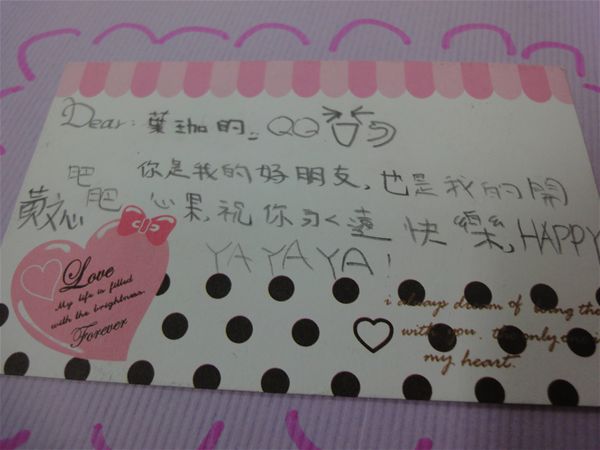 Dear: 葉珈的 QQ
你是我的好朋友,也是我的開
心果,祝你永遠快樂,HAPPY
YA YA YA!
肥肥
Love
My life is filled
with the brightness.
Forever
i always dream of being
with you. the only
my heart.